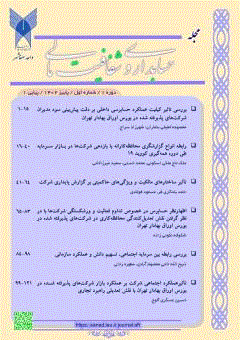 مجله
حسابداری و شفافیت مالی
دوره ۱ / شماره اول / پاییز ۱۴۰۲ / پیاپی ۱
بررسی تاثیر کیفیت عملکرد حسابرسی داخلی بر دقت پیش‌بینی سود مدیران
شرکت‌های پذیرفته شده در بورس اوراق بهادار تهران
۱-۱۵
رابطه انواع گزارشگری محافظه‌کارانه با بازدهی شرکت‌ها در بازار سرمایه
طی دوره همه‌گیری کووید ۱۹
۱۶-۴۰
تاثیر ساختارهای مالکیت و ویژگی‌های حاکمیتی بر گزارش پایداری شرکت
۴۱-۶۴
اظهارنظر حسابرس در خصوص تداوم فعالیت و ورشکستگی شرکت‌ها با در
نظر گرفتن نقش تعدیل‌کنندگی محافظه‌کاری در شرکت‌های پذیرفته شده در
بورس اوراق بهادار تهران
۶۵-۸۴
بررسی رابطه بین سرمایه اجتماعی، تسهیم دانش و عملکرد سازمانی
۸۵-۹۸
تاثیر عملکرد اجتماعی شرکت بر عملکرد بازار شرکت‌های پذیرفته شده در
بورس اوراق بهادار تهران با نقش تعدیلی راهبرد تجاری
۹۹-۱۲۱